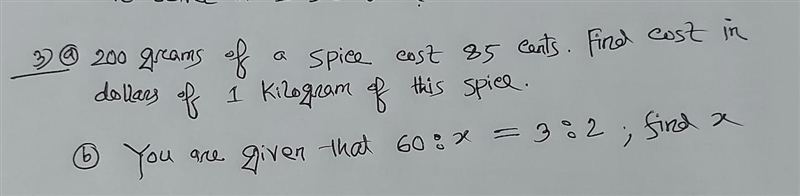 3) ⓐ 200 grams of a spice cost 85 cents. Find cost in
dollars of 1 Kilogram of this spice.
ⓑ You are given that 60 : x = 3 : 2 ; find x